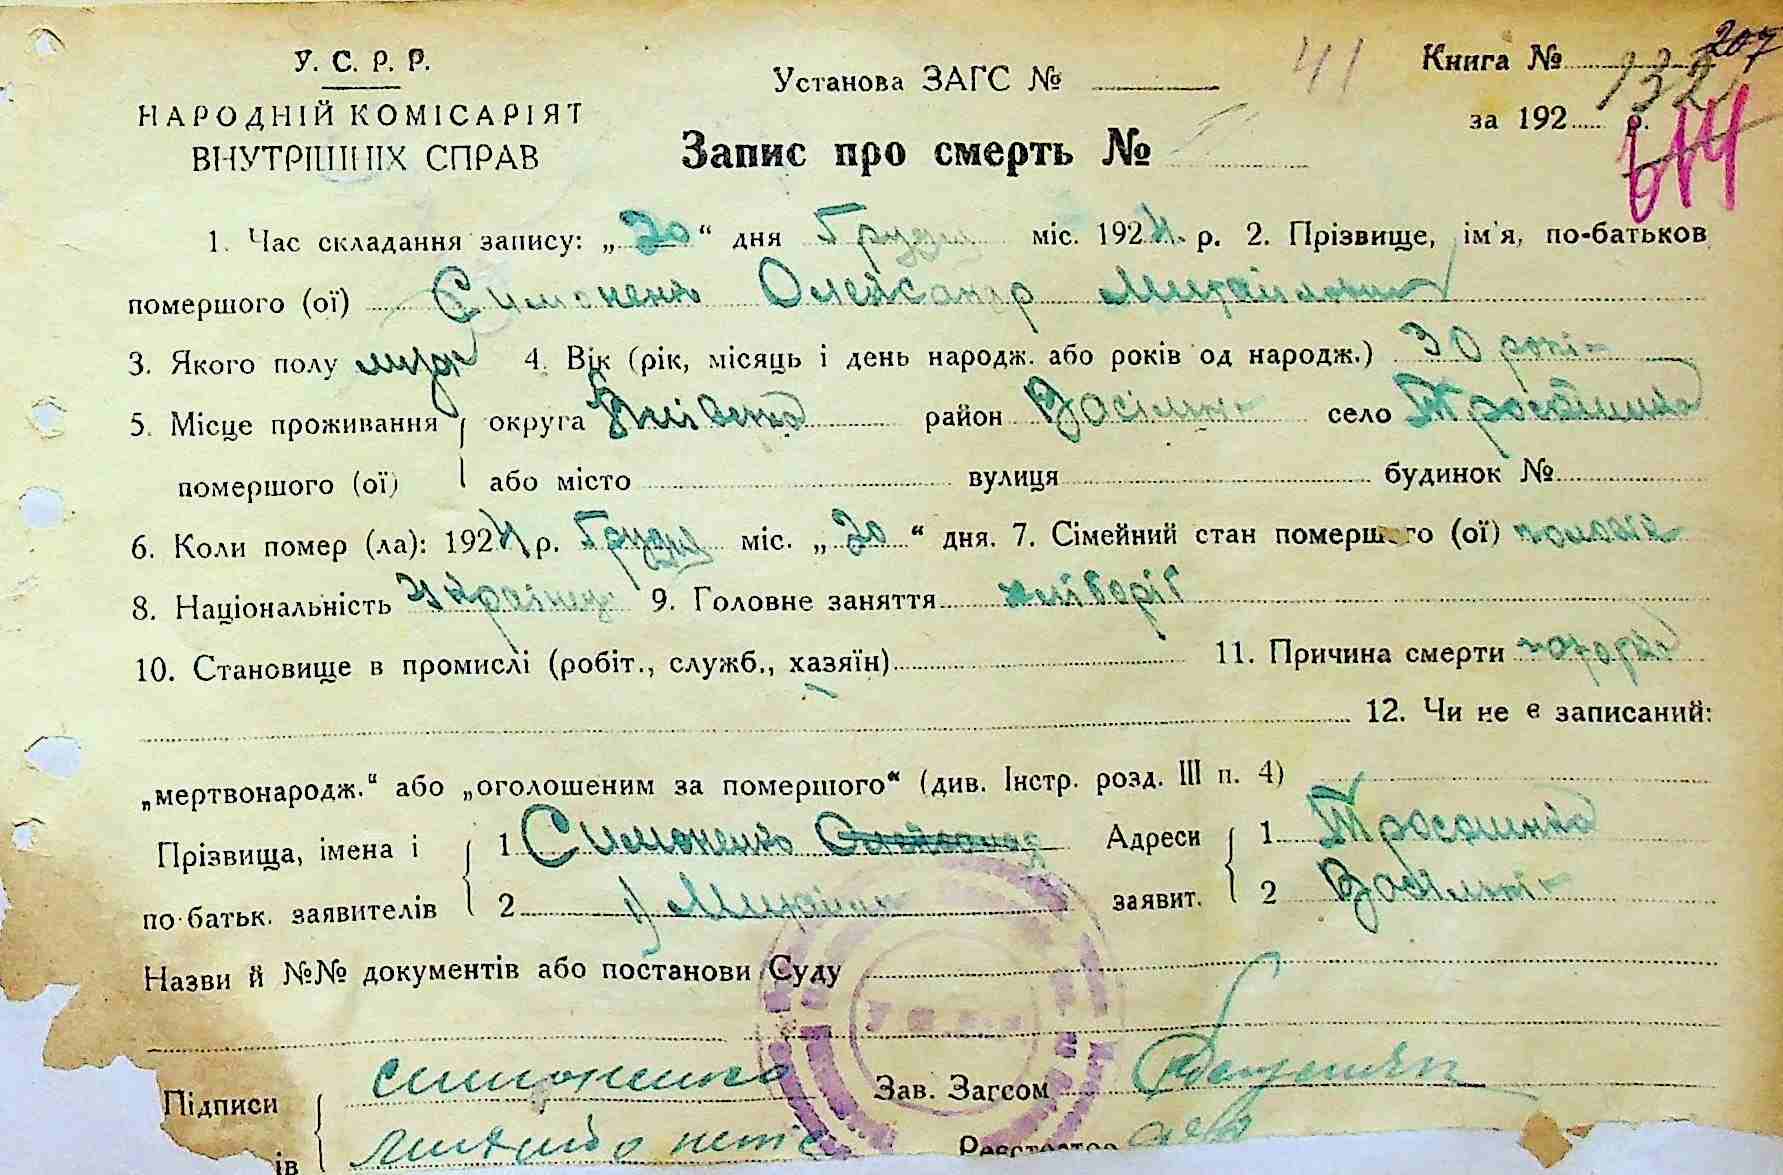 У. С. Р. Р.
НАРОДНІЙ КОМІСАРІЯТ
ВНУТРІШНІХ СПРАВ
Установа ЗАГС №
41
Книга № 207
132
за 192 р.
614
Запис про смерть №
1. Час складання запису: „20“ дня Грудня міс. 192 р. 2. Прізвище, ім'я, по-батьков
помершого (ої) Симоненко Олександр Михайлович
3. Якого полу муж 4. Вік (рік, місяць і день народж. або років од народж.) 30 років
5. Місце проживання округа Київська район Васільків село Тросашинка
помершого (ої) або місто вулиця будинок №
6. Коли помер (ла): 192 р. Грудня міс. „20“ дня. 7. Сімейний стан помершого (ої)
8. Національність Українец 9. Головне заняття хлібороб
10. Становище в промислі (робіт., служб., хазяїн) 11. Причина смерти
12. Чи не є записаний:
„мертвонародж.“ або „оголошеним за помершого“ (див. Інстр. розд. III п. 4)
Прізвища, імена і 1 Симоненко Адреси 1 Тросашинка
по-батьк. заявителів 2 Михайло заявит. 2 Васільків
Назви й №№ документів або постанови Суду
Підписи Симоненко Зав. Загсом
ів Реєстратор